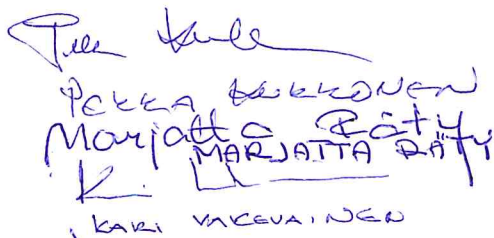 PEKKA KUKKONEN
Marjatta Räty
MARJATTA RÄTY
K.
KARI VAKEVAINEN